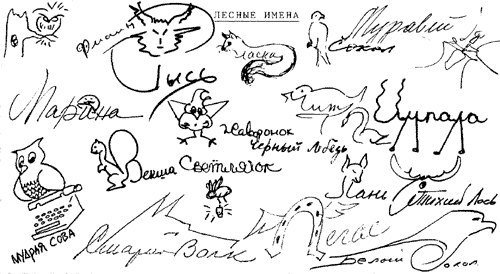 ЛЕСНЫЕ ИМЕНА
Филин
Рысь
Ласка
Сокол
Муравей
Марина
Жаворонок
Черный Лебедь
Чит
Цупала
Векша
Светлячок
Лань
Тихий Лось
МУДРАЯ СОВА
Старый Волк
Пегас
Белый Сокол